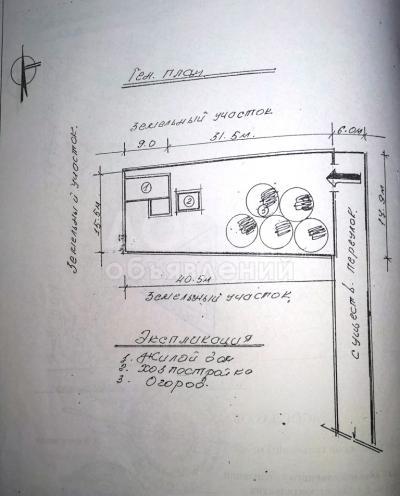 Ген. план
Земельный участок
9.0 31.5м. 6.0м
Земельный участок.
15.5м
1
2
3
17.9м
объявлений
40.5м
Земельный участок.
Существ. переулок
Экспликация
1. Жилой дом
2. Хозпостройка
3. Огород.